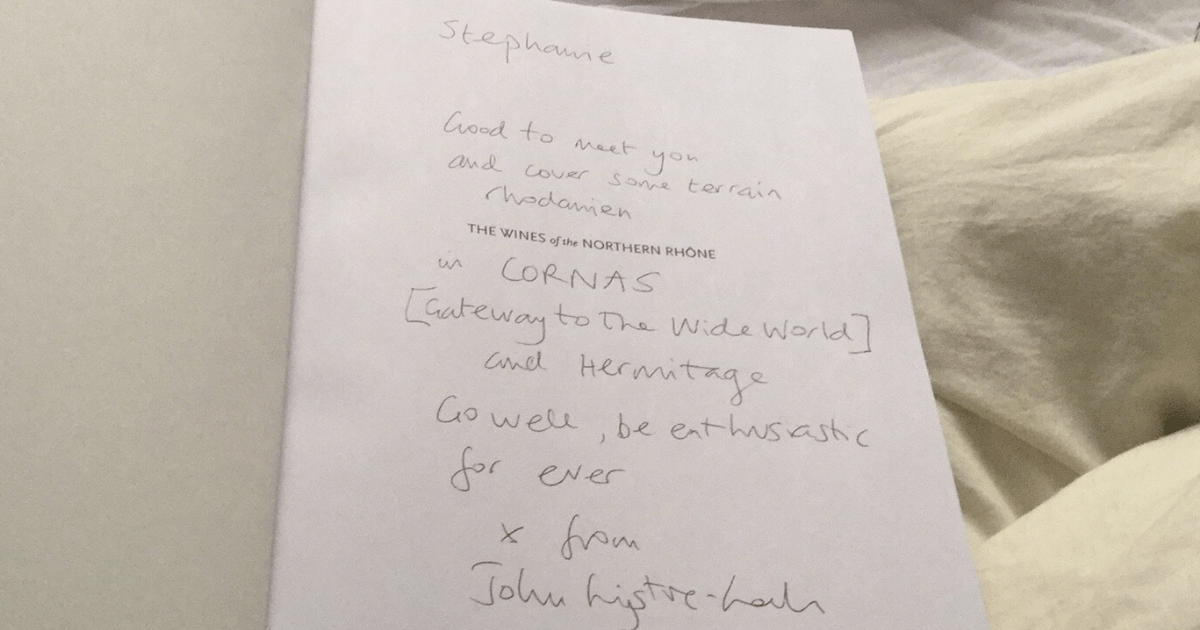 Stephanie
Good to meet you
and cover some terrain
rhodanien
THE WINES of the NORTHERN RHÔNE
in CORNAS
[Gateway to The Wide World]
and Hermitage
Go well, be enthusiastic
for ever
x from
John